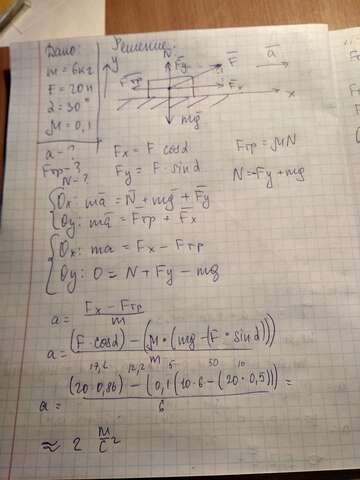 Дано:
m = 6 кг
F = 20 н
α = 30°
μ = 0,1
a - ?
Fтр - ?
N - ?
Решение.
y
N
F̄y
F̄
ā
F̄тр
F̄x
x
mḡ
Fx = F cosα
Fтр = μN
Fy = F · sinα
N = -Fy + mg
Ox: mā = N̄ + mḡ + F̄y
Oy: mā = F̄тр + F̄x
Ox: ma = Fx - Fтр
Oy: 0 = N + Fy - mg
a = Fx - Fтр / m
a = (F · cosα) - (μ · (mg - (F · sinα))) / m
17,2 12,2 5 50 10
a = (20 · 0,86) - (0,1 (10 · 6 - (20 · 0,5))) / 6 =
≈ 2 м/с²